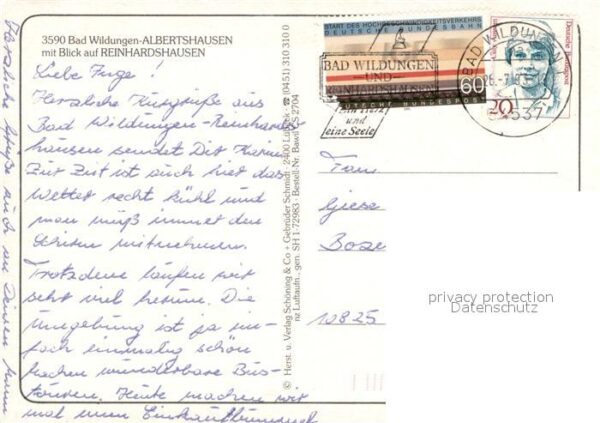 3590 Bad Wildungen-ALBERTSHAUSEN
mit Blick auf REINHARDSHAUSEN
Liebe Inge!
Herzliche Kurgrüße aus
Bad Wildungen-Reinhards-
hausen sendet Dir Karin
Zur Zeit ist auch hier das
Wetter recht kühl und
man muß immer den
Schirm mitnehmen.
Trotzdem laufen wir
sehr viel herum. Die
Umgebung ist ja ein-
fach einmalig schön
machen wunderbare
Heute machen wir
mal einen Einkaufsbummel
Herzliche Grüße auch an Deinen Mann
© Herst. u. Verlag Schöning & Co + Gebrüder Schmidt · 2400 Lübeck ☎ (0451) 310 310 0
nz Luftaufn., gen. SH 1-72983 · Bestell-Nr. BawiR S 2704
START DES HOCHGESCHWINDIGKEITSVERKEHRS
DEUTSCHE BUNDESBAHN
60
DEUTSCHE BUNDESPOST
BAD WILDUNGEN
UND
REINHARDSHAUSEN
und
eine Seele
BAD WILDUNGEN
Deutsche Bundespost
20
Frau
Giese
Boze
10825
privacy protection
Datenschutz